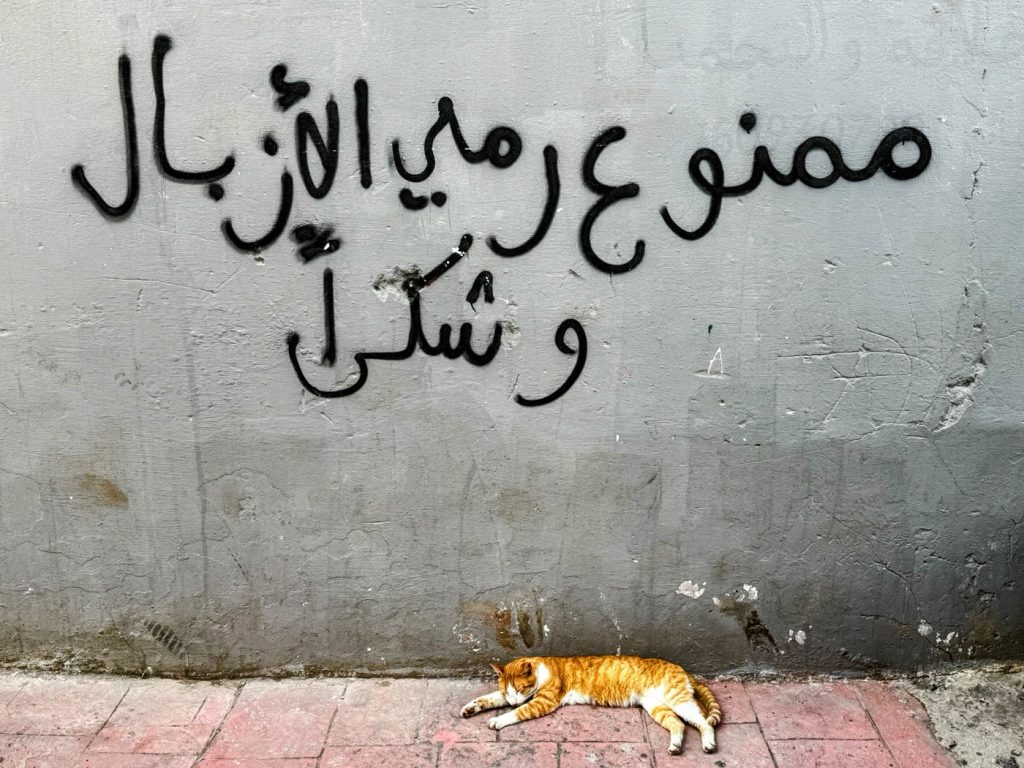 ممنوع رمي الأزبال
و شكراً